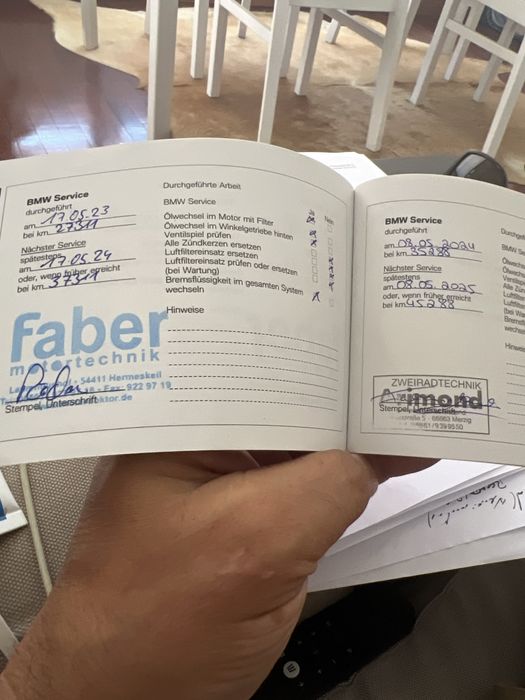 BMW Service
durchgeführt
am 17.05.23
bei km 27311
Nächster Service
spätestens
am 17.05.24
oder, wenn früher erreicht
bei km 37311
faber
motortechnik
54411 Hermeskeil
Fax 922 97 19
Stempel, Unterschrift
Durchgeführte Arbeit
BMW Service
Ja Nein
Ölwechsel im Motor mit Filter
Ölwechsel im Winkelgetriebe hinten
Ventilspiel prüfen
Alle Zündkerzen ersetzen
Luftfiltereinsatz ersetzen
Luftfiltereinsatz prüfen oder ersetzen
(bei Wartung)
Bremsflüssigkeit im gesamten System
wechseln
Hinweise
BMW Service
durchgeführt
am 08.05.2024
bei km 35288
Nächster Service
spätestens
am 08.05.2025
oder, wenn früher erreicht
bei km 45288
ZWEIRADTECHNIK
Stempel, Unterschrift
66663 Merzig
BMW Se
Ölwechs
Ölwechs
Ventilsp
Alle Zün
Luftfilte
Luftfilte
(bei Wa
Brems
wechs